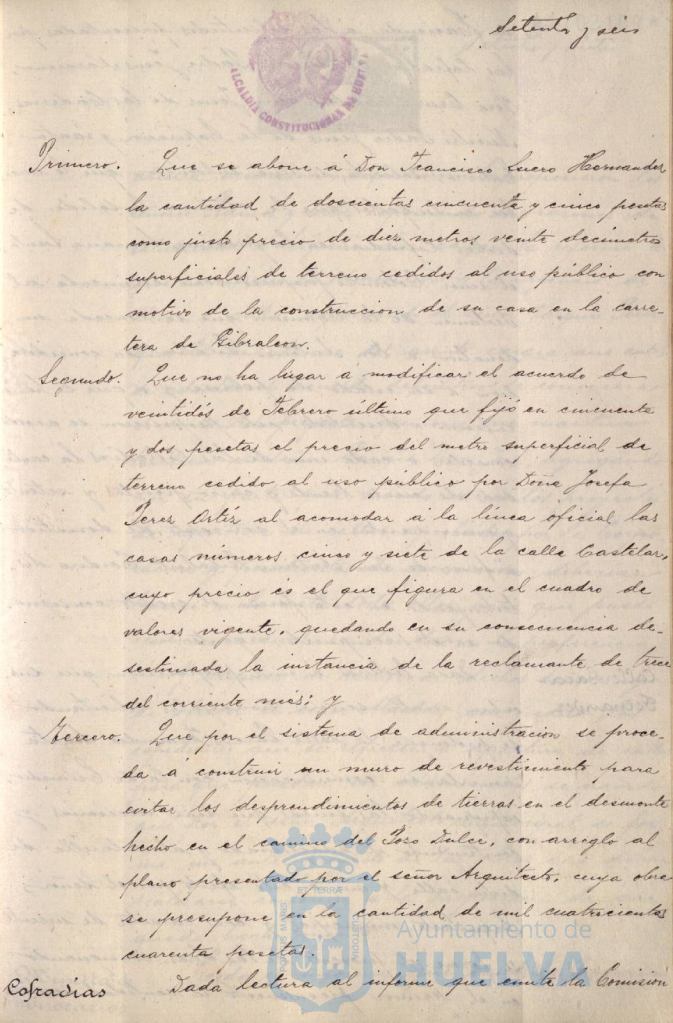 Setenta y seis
ALCALDIA CONSTITUCIONAL DE HUELVA
Primero. Que se abone á Don Francisco Suero Hernandez
la cantidad de doscientas cincuenta y cinco pesetas
como justo precio de diez metros veinte decímetros
superficiales de terreno cedidos al uso público con
motivo de la construccion de su casa en la carre-
tera de Gibraleon.
Segundo. Que no ha lugar a modificar el acuerdo de
veintidós de Febrero último que fijó en cincuenta
y dos pesetas el precio del metro superficial de
terreno cedido al uso público por Doña Josefa
Perez Ortíz al acomodar á la línea oficial las
casas números cinco y siete de la calle Castelar,
cuyo precio és el que figura en el cuadro de
valores vigente, quedando en su consecuencia de-
sestimada la instancia de la reclamante de trece
del corriente més; y
Tercero. Que por el sistema de administracion se proce-
da á construir un muro de revestimiento para
evitar los desprendimientos de tierras en el desmonte
hecho en el camino del Pozo Dulce, con arreglo al
plano presentado por el señor Arquitecto, cuya obra
se presupone en la cantidad de mil cuatrocientas
cuarenta pesetas.
Cofradias Dada lectura al informe que emite la Comisión
PORTUS MARIS ET TERRÆ CUSTODIA
Ayuntamiento de
HUELVA